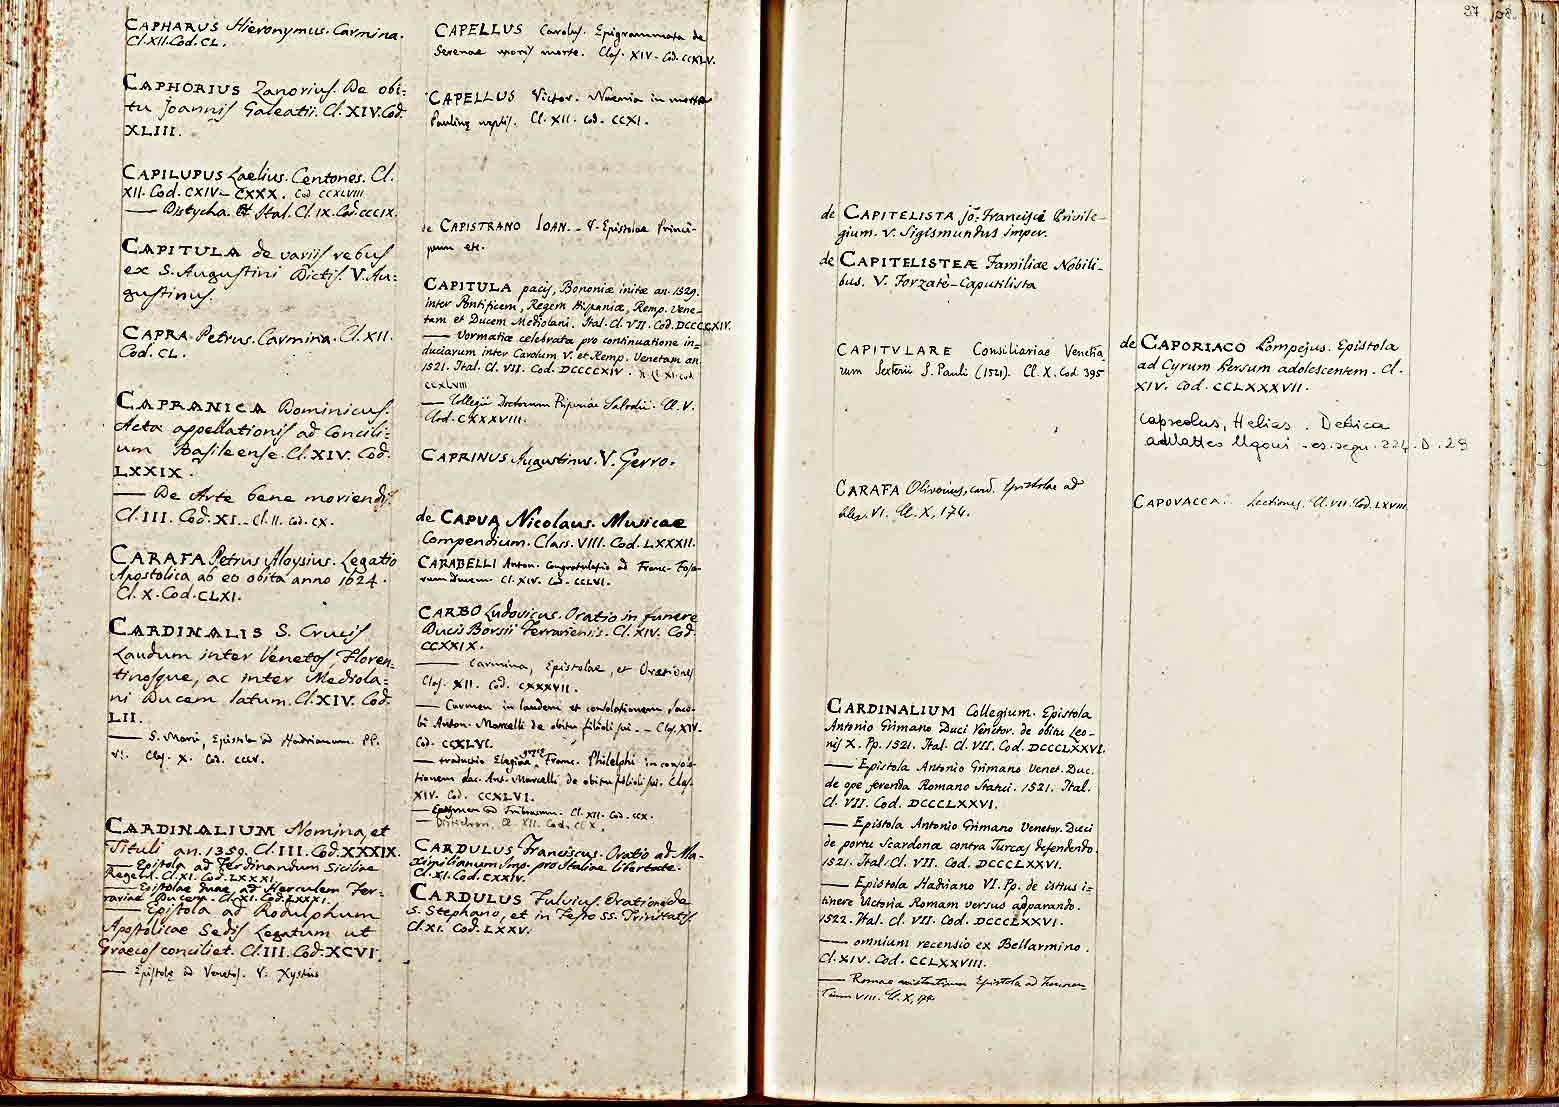 CAPHARUS Hieronymus. Carmina.
Cl. XII. Cod. CL.
CAPHORIUS Zanorius. De obi-
tu Joannis Galeatii. Cl. XIV. Cod.
XLIII.
CAPILUPUS Laelius. Centones. Cl.
XII. Cod. CXIV – CXXX. Cod. CCXLVIII
— Distycha. Ital. Cl. IX. Cod. CCCIX.
CAPITULA de variis rebus
ex S. Augustini Dictis. V. Au-
gustinus.
CAPRA Petrus. Carmina. Cl. XII.
Cod. CL.
CAPRANICA Dominicus.
Acta appellationis ad Concili-
um Basileense. Cl. XIV. Cod.
LXXIX.
— De Arte bene moriendi.
Cl. III. Cod. XI. – Cl. II. Cod. CX.
CARAFA Petrus Aloysius. Legatio
Apostolica ab eo obita anno 1624.
Cl. X. Cod. CLXI.
CARDINALIS S. Crucis
Laudum inter Venetos, Floren-
tinosque, ac inter Mediola-
ni Ducem latum. Cl. XIV. Cod.
LII.
— S. Mariæ, Epistola ad Hadrianum PP.
VI. Clas. X. Cod. CCCV.
CARDINALIUM Nomina, et
Tituli an. 1359. Cl. III. Cod. XXXIX.
— Epistola ad Ferdinandum Siciliae
Regem. Cl. XI. Cod. LXXXI.
— Epistolae duae ad Herculem Fer-
rariae Ducem. Cl. XI. Cod. LXXXI.
— Epistola ad Rodulphum
Apostolicae Sedis Legatum ut
Graecos conciliet. Cl. III. Cod. XCVI.
— Epistolę ad Venetos. V. Xystus
CAPELLUS Carolus. Epigrammata de
Serenae moris morte. Clas. XIV. Cod. CCXLV.
CAPELLUS Victor. Naenia in morte
Paulinę neptis. Cl. XII. Cod. CCXI.
de CAPISTRANO IOAN. – V. Epistolae Princi-
pum etc.
CAPITULA pacis, Bononiæ initæ an. 1529.
inter Pontificem, Regem Hispaniæ, Remp. Vene-
tam et Ducem Mediolani. Ital. Cl. VII. Cod. DCCCCXIV.
— Vormatiæ celebrata pro continuatione in-
duciarum inter Carolum V. et Remp. Venetam an.
1521. Ital. Cl. VII. Cod. DCCCCXIV. Cl. XI. Cod.
CCXLVIII
— Collegii Doctorum Riperiae Salodii. Cl. V.
Cod. CXXXVIII.
CAPRINUS Augustinus. V. Gerro.
de CAPUA Nicolaus. Musicae
Compendium. Class. VIII. Cod. LXXXII.
CARABELLI Anton. Congratulatio ad Franc. Fosca-
rum Ducem. Cl. XIV. Cod. CCLVI.
CARBO Ludovicus. Oratio in funere
Ducis Borsii Ferrariensis. Cl. XIV. Cod.
CCXXIX.
— Carmina, Epistolae, et Orationes
Clas. XII. Cod. CXXXVII.
— Carmen in laudem et consolationem Jaco-
bi Anton. Marcelli de obitu filioli sui – Clas. XIV.
Cod. CCXLVI.
— traductio Elegiæ Franc. Philelphi in conso-
tionem Jac. Ant. Marcelli de obitu filioli sui. Clas.
XIV. Cod. CCXLVI.
— ad Tribracum. Cl. XII. Cod. CCX.
— Distichon, Cl. XII. Cod. CCX.
CARDULUS Franciscus. Oratio ad Ma-
ximilianum Imp. pro Italiae libertate.
Cl. XI. Cod. CXXIV.
CARDULUS Fulvius. Orationes de
S. Stephano, et in Festo SS. Trinitatis
Cl. XI. Cod. LXXV.
37
38
de CAPITELISTA Jo: Francisci Privile-
gium. V. Sigismundus Imper.
de CAPITELISTEÆ Familiae Nobili-
bus. V. Forzatè – Caputilista
CAPITULARE Consiliariae Venetia-
rum Sexterii S. Pauli (1521). Cl. X. Cod. 395
CARAFA Oliverius, card. Epistolae ad
Alex. VI. Cl. X, 174.
CARDINALIUM Collegium. Epistola
Antonio Grimano Duci Venetor. de obitu Leo-
nis X. Pp. 1521. Ital. Cl. VII. Cod. DCCCLXXVI.
— Epistola Antonio Grimano Venet. Duc.
de ope ferenda Romano Statui. 1521. Ital.
Cl. VII. Cod. DCCCLXXVI.
— Epistola Antonio Grimano Venetor. Duci
de portu Scardonæ contra Turcas defendendo.
1521. Ital. Cl. VII. Cod. DCCCLXXVI.
— Epistola Hadriano VI. Pp. de istius i-
tinere Victoria Romam versus apparando.
1522. Ital. Cl. VII. Cod. DCCCLXXVI.
— omnium recensio ex Bellarmino.
Cl. XIV. Cod. CCLXXVIII.
— Romae existentium Epistola ad Innocen-
tium VIII. Cl. X, 174
de CAPORIACO Pompejus. Epistola
ad Cyrum Persum adolescentem. Cl.
XIV. Cod. CCLXXXVII.
Capreolus, Helias. Dedica
ad Matteo Ugoni – 224. D. 29
CAPOVACCA. Lectiones. Cl. VII. Cod. LXVIII.